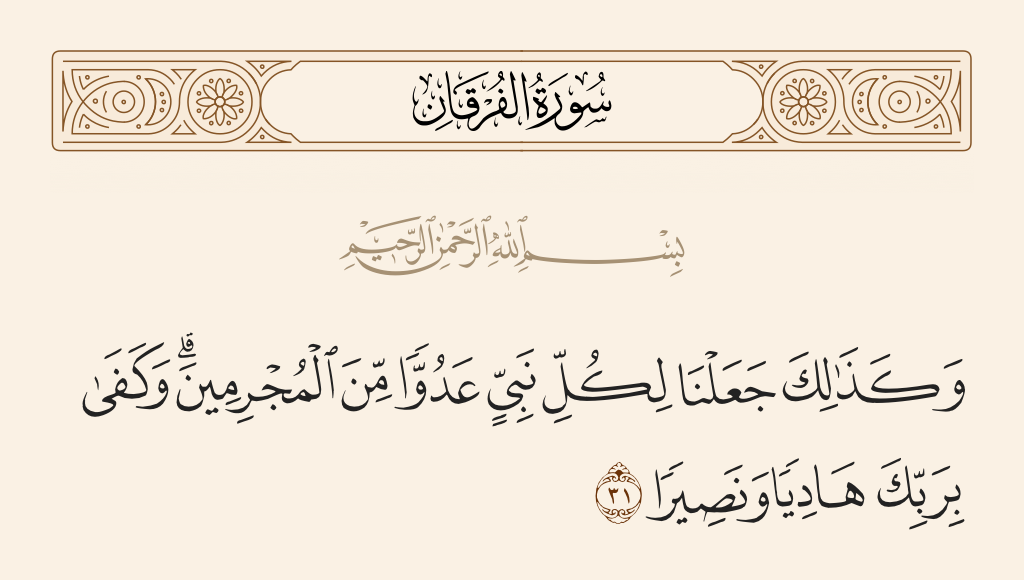 سُورَةُ الفُرْقَانِ
بِسْمِ ٱللَّهِ ٱلرَّحْمَٰنِ ٱلرَّحِيمِ
وَكَذَٰلِكَ جَعَلْنَا لِكُلِّ نَبِيٍّ عَدُوًّا مِّنَ ٱلْمُجْرِمِينَۗ وَكَفَىٰ
بِرَبِّكَ هَادِيًا وَنَصِيرًا ٣١